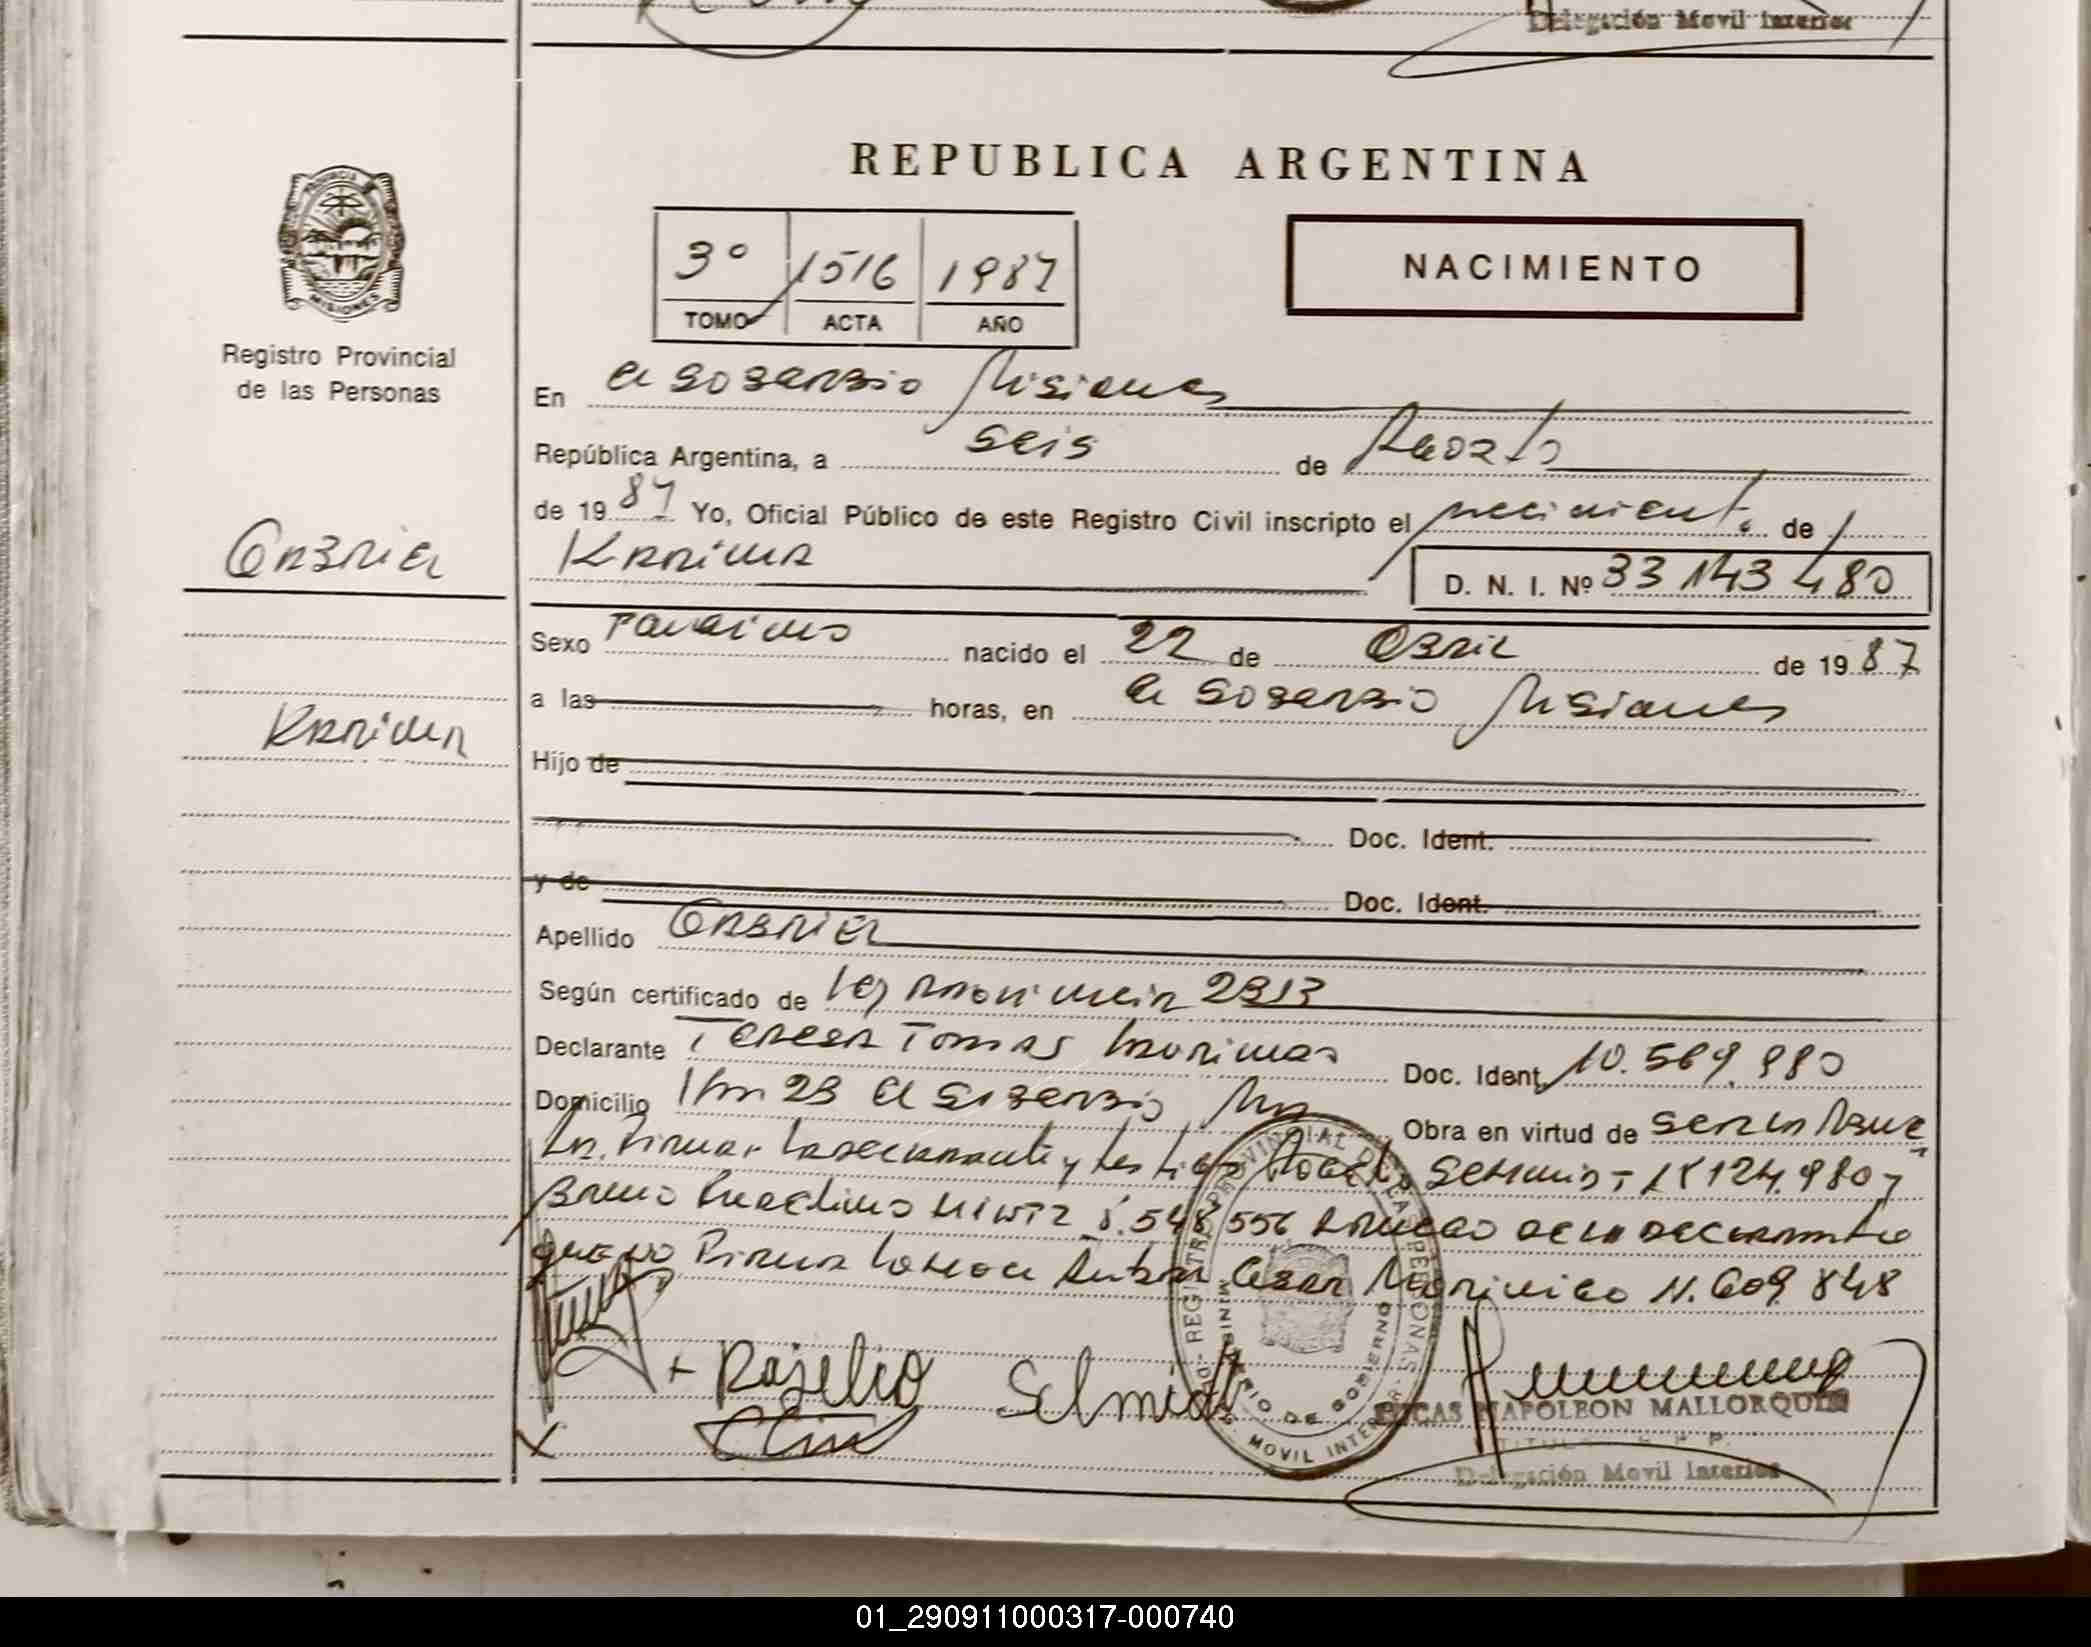 Delegación Movil Interior
REPUBLICA ARGENTINA
PROVINCIA
MISIONES
3º 1516 1987
TOMO ACTA AÑO
NACIMIENTO
Registro Provincial
de las Personas
En El Soberbio Misiones
República Argentina, a seis de Agosto
de 1987 Yo, Oficial Público de este Registro Civil inscripto el nacimiento de
Gabriel
Karina
D. N. I. Nº 33 143 480
Sexo Femenino nacido el 22 de Abril de 1987
a las horas, en El Soberbio Misiones
Karina
Hijo de
Doc. Ident.
y de Doc. Ident.
Apellido Gabriel
Según certificado de Ley Provincial 2313
Declarante Teresa Tomas Doc. Ident. 10.569.980
Domicilio Km 23 El Soberbio Mns Obra en virtud de
firman la declarante y testigo Schmidt 124.980 y
Bruno 8.548 556 a ruego de la declarante
que no firma lo hace Ruben Cesar 11.609.848
+ Rojelio Schmidt
REGISTRO PROVINCIAL DE LAS PERSONAS
MINISTERIO DE GOBIERNO
MOVIL INTERIOR
LUCAS NAPOLEON MALLORQUIN
Delegación Movil Interior
01_290911000317-000740